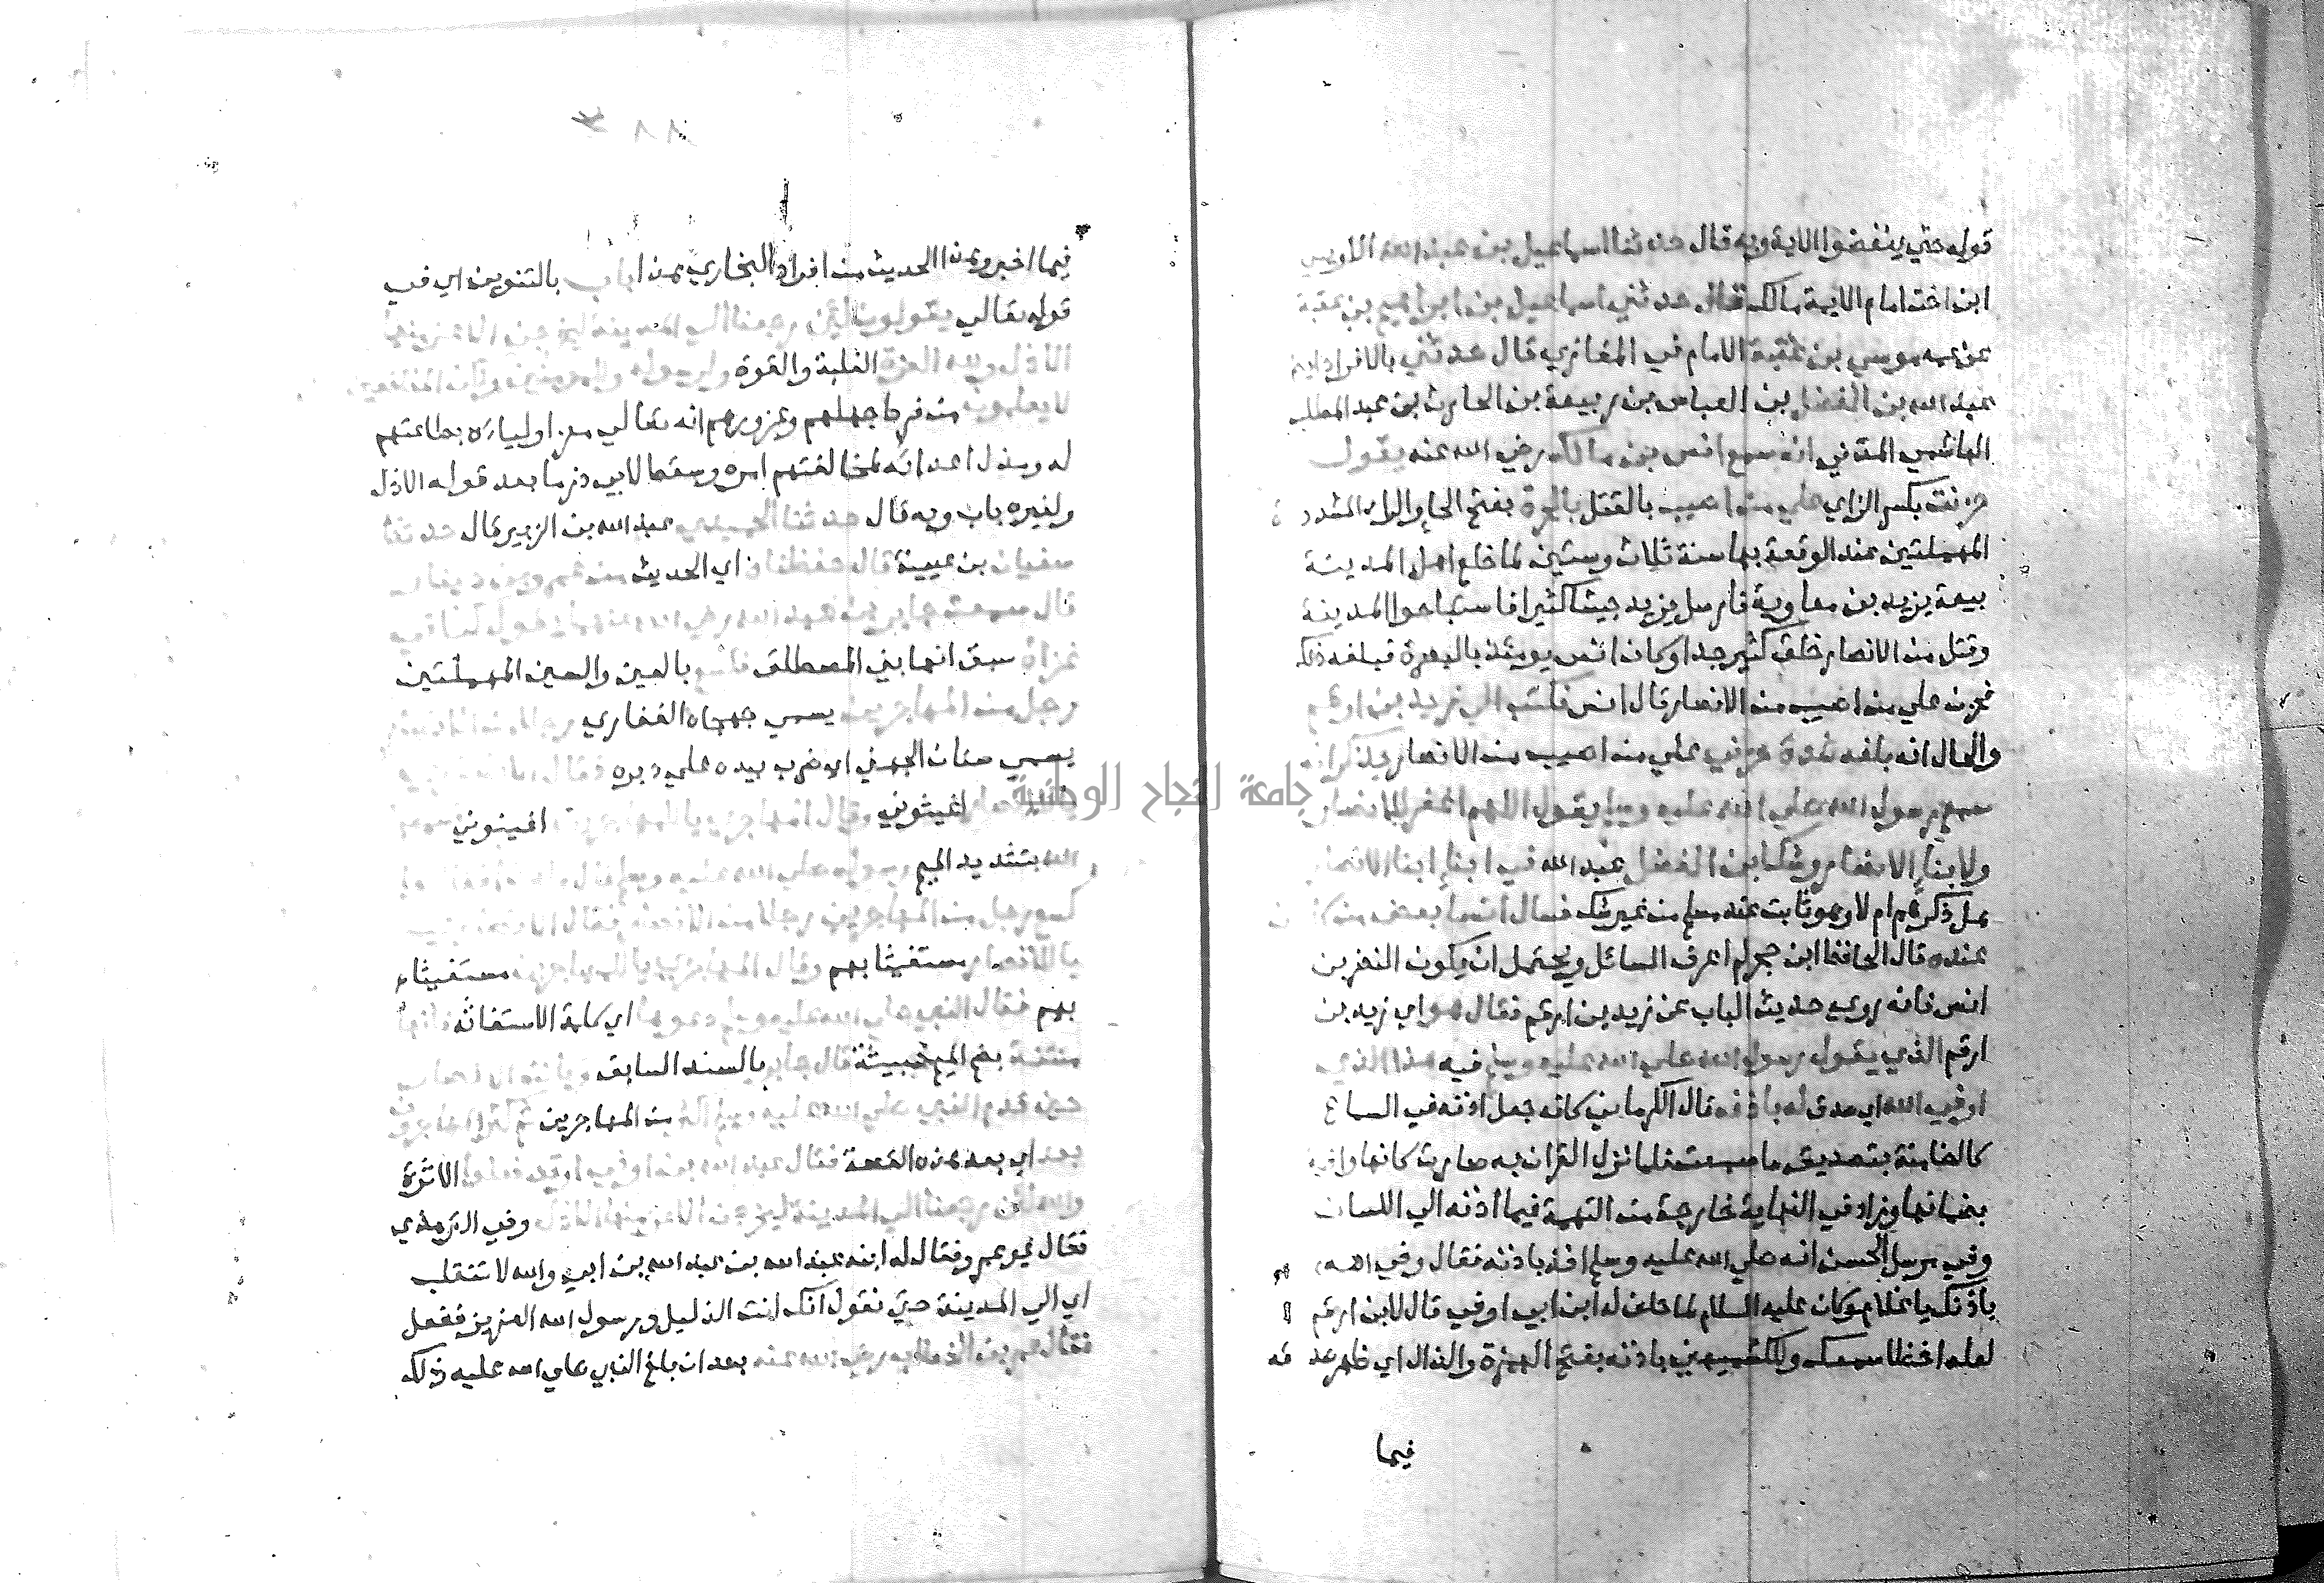 قوله حتي ينفضوا الاية وبه قال حدثنا اسماعيل بن عبد الله الاويسي
ابن اخت امام الايمة مالك قال حدثني اسماعيل بن ابراهيم بن عقبة
عن عمه موسي بن عقبة الامام في المغازي قال حدثني بالافراد
عبد الله بن الفضل بن العباس بن ربيعة بن الحارث بن عبد المطلب
الهاشمي المدني انه سمع انس بن مالك رضي الله عنه يقول
حزنت بكسر الزاي علي من اصيب بالقتل بالحرة بفتح الحا والرا المشدد
المهملتين عند الوقعة بها سنة ثلاث وستين لما خلع اهل المدينة
بيعة يزيد بن معاوية فارسل يزيد جيشا كثيرا فاستباحوا المدينة
وقتل من الانصار خلق كثير جدا وكان انس يومئذ بالبصرة فبلغه ذلك
فحزن علي من اصيب من الانصار قال انس فكتب الي زيد بن ارقم
والحال انه بلغه شدة حزني علي من اصيب من الانصار يذكر انه
سمع رسول الله صلي الله عليه وسلم يقول اللهم اغفر للانصار
ولابنا الانصار وشك ابن الفضل عبد الله في ابنا ابنا الانصار
هل ذكرهم ام لا وهو ثابت عند مسلم من غير شك فسال انسا بعض من كان
عنده قال الحافظ ابن حجر لم اعرف السائل ويحتمل ان يكون النضر بن
انس فانه روي حديث الباب عن زيد بن ارقم فقال هو اي زيد بن
ارقم الذي يقول رسول الله صلي الله عليه وسلم فيه هذا الذي
اوفي الله اي صدق له باذنه قال الكرماني كانه جعل اذنه في السماع
كالضامنة بتصديق ما سمعت فلما نزل القران به صارت كانها وافية
بضمانها وزاد في النهاية خارجة من التهمة فيما اذنه الي اللسان
وفي مرسل الحسن انه صلي الله عليه وسلم اخذ باذنه فقال وفي الله
باذنك يا غلام وكان عليه السلام لما حلف له ابن ابي اوفي قال لابن ارقم
لعله اخطا سمعك وللكشميهني باذنه بفتح الهمزة والذال اي ظهر صدقه
فيما
فيما اخبر وهذا الحديث من افراد البخاري هذا باب بالتنوين اي في
قوله تعالي يقولون لئن رجعنا الي المدينة ليخرجن الاعز منها
الاذل ولله العزة الغلبة والقوة ولرسوله وللمؤمنين ولكن المنافقين
لا يعلمون من فرط جهلهم وغرورهم انه تعالي معز اوليائه بطاعتهم
له ومذل اعدائه لمخالفتهم امره وسقط لابي ذر ما بعد قوله الاذل
ولغيره باب وبه قال حدثنا الحميدي عبد الله بن الزبير قال حدثنا
سفيان بن عيينة قال حفظناه اي الحديث من عمرو بن دينار
قال سمعت جابر بن عبد الله رضي الله عنهما يقول كنا في
غزاة سبق انها بني المصطلق فكسع بالعين والسين المهملتين
رجل من المهاجرين يسمي جهجاه الغفاري رجلا من الانصار
يسمي سنان الجهني اي ضرب بيده علي دبره فقال الانصاري
اغيثوني وقال المهاجري يا للمهاجرين اغيثوني
الله بتشديد الميم رسوله صلي الله عليه وسلم قال ما هذا فقالوا
كسع رجل من المهاجرين رجلا من الانصار فقال الانصاري
يا للانصار مستغيثا بهم وقال المهاجري يا للمهاجرين مستغيثا
بهم فقال النبي صلي الله عليه وسلم دعوها اي كلمة الاستغاثة فانها
منتنة بضم الميم خبيثة قال جابر بالسند السابق وكانت الانصار
حين قدم النبي صلي الله عليه وسلم اكثر من المهاجرين ثم كثر المهاجرون
بعد اي بعد هذه القصة فقال عبد الله بن ابي اوقد فعلوا الاثرة
والله لئن رجعنا الي المدينة ليخرجن الاعز منها الاذل وفي الترمذي
فقال غير عمرو فقال له ابنه عبد الله بن عبد الله بن ابي والله لا تنقلب
اي الي المدينة حتي تقول انك انت الذليل ورسول الله العزيز ففعل
فقال عمر بن الخطاب رضي الله عنه بعد ان بلغ النبي صلي الله عليه ذلك
جامعة النجاح الوطنية